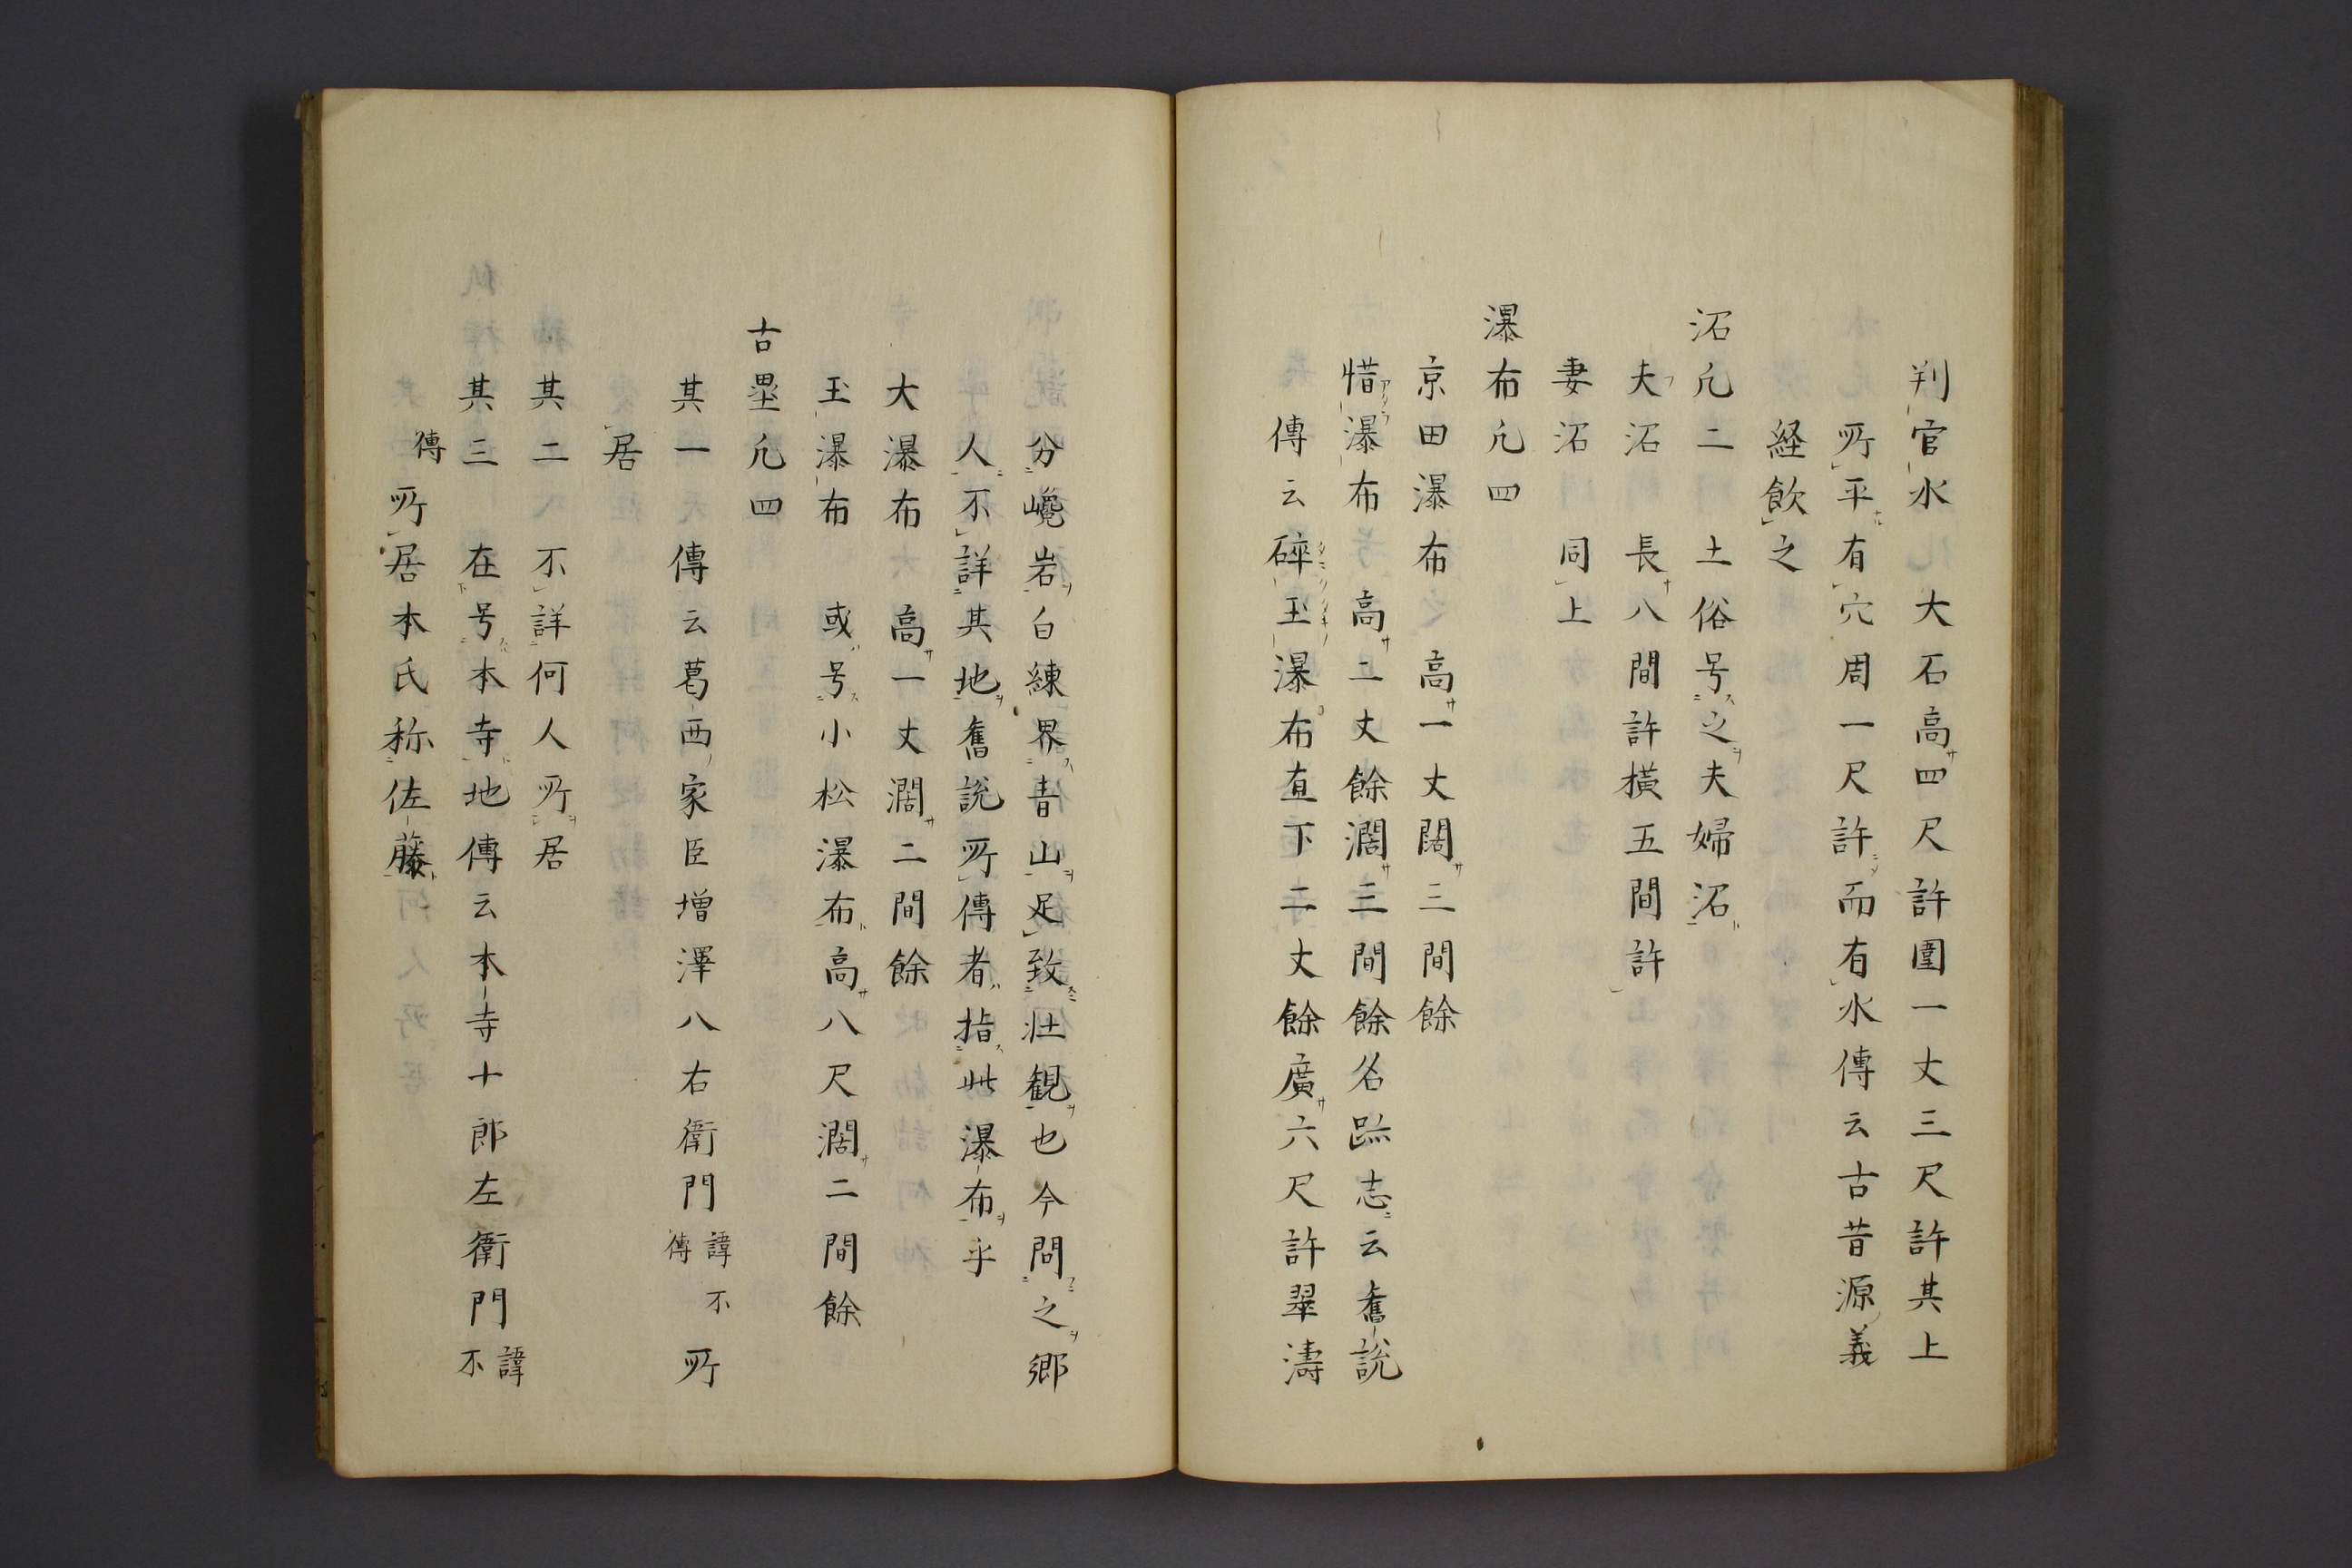 判官水　大石高四尺許圍一丈三尺許其上
所平有穴周一尺許而有水傳云古昔源義
経飲之
沼凢二　土俗号之夫婦沼
夫沼　長八間許橫五間許
妻沼　同上
瀑布凢四
京田瀑布　高一丈闊三間餘
惜瀑布　高二丈餘濶三間餘名跡志云舊説
傳云碎玉瀑布直下二丈餘廣六尺許翠濤
分巉岩白練界青山足致壯観也今問之鄉
人不詳其地舊説所傳者指此瀑布乎
大瀑布　高一丈濶二間餘
玉瀑布　或号小松瀑布高八尺濶二間餘
古壘凢四
其一　傳云葛西家臣増澤八右衛門諱不傳所
居
其二　不詳何人所居
其三　在号本寺地傳云本寺十郎左衛門諱不
傳所居本氏称佐藤